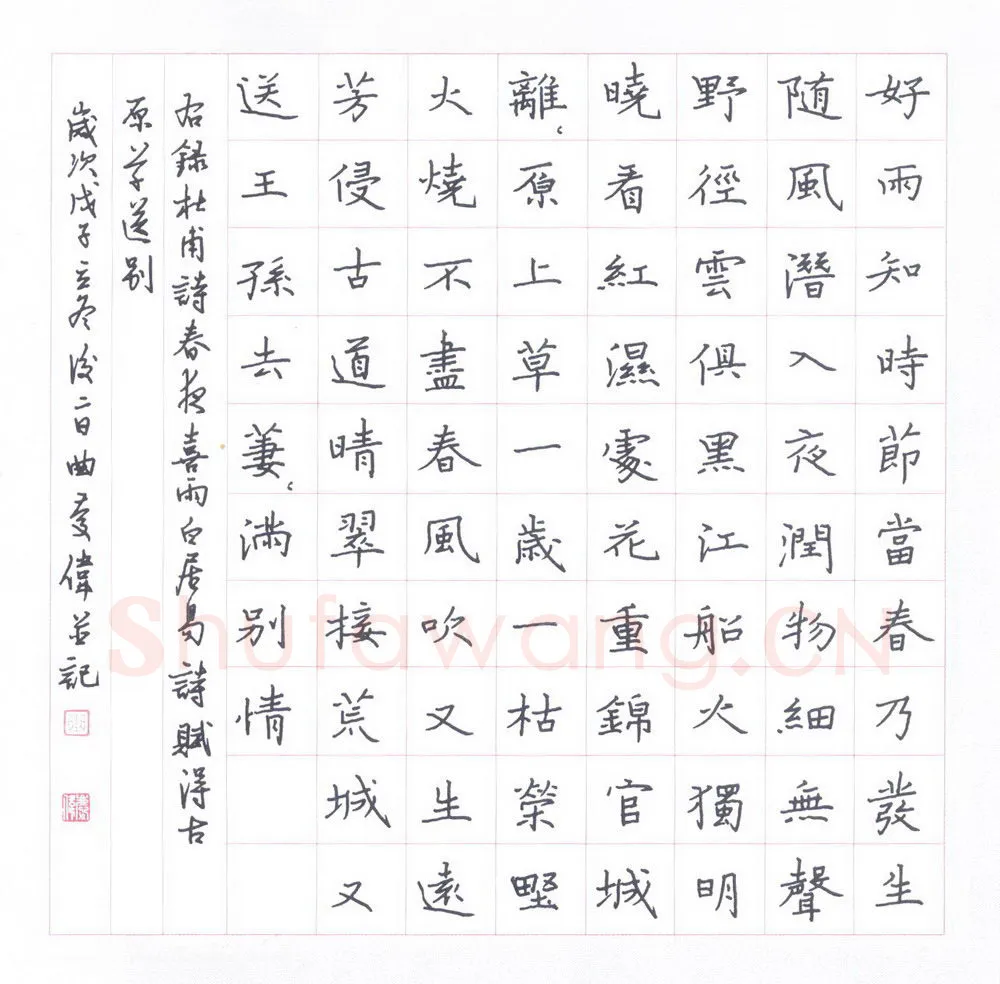 好雨知時節當春乃發生
随風潛入夜潤物細無聲
野徑雲俱黑江船火獨明
曉看紅濕處花重錦官城
離〻原上草一歲一枯榮野
火燒不盡春風吹又生遠
芳侵古道晴翠接荒城又
送王孫去萋〻滿别情
右録杜甫詩春夜喜雨白居易詩賦得古
原草送别
歲次戊子立冬後二日曲慶偉並記
Shufawang.CN